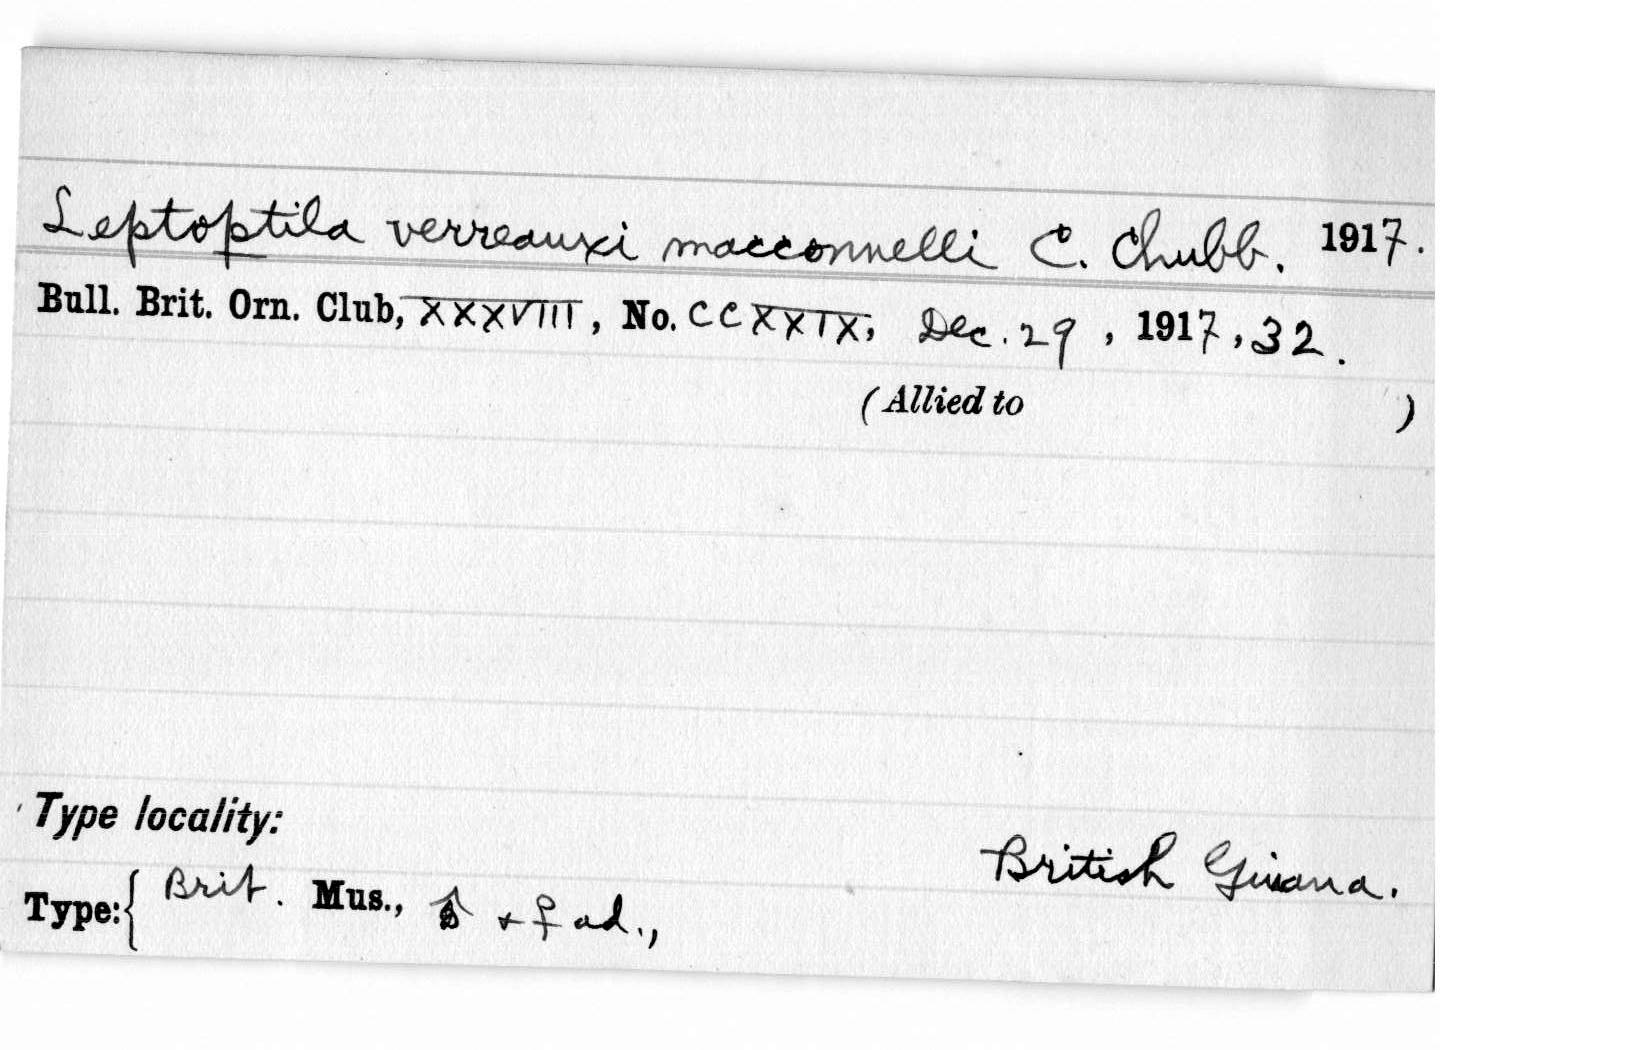 Leptoptila verreauxi macconnelli C. Chubb. 1917.
Bull. Brit. Orn. Club, XXXVIII, No. CCXXIX, Dec. 29, 1917, 32.
(Allied to )
Type locality:
British Guiana.
Type: { Brit. Mus., ♂ + ♀ ad.,